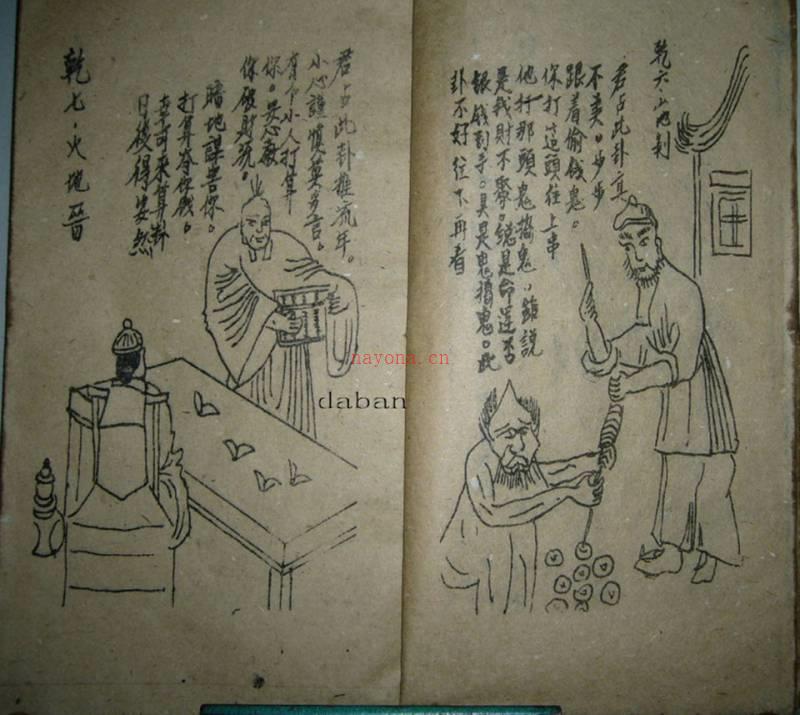 乾六·山地剥
君占此卦真
不卖。步步
跟着偷钱鬼。
你打這頭往上串
他打那頭鬼搗鬼，雖説
是我財不聚。總是命運否
銀钱到手。具是鬼搗鬼。此
卦不好往下再看
君占此卦推流年。
小心謹慎莫多言。
有个小人打算
你。安心
你破財玩。
暗地謀害你。
打算夺你钱。
幸可來算卦
日後得安然
乾七·火地晉
nayona.cn
daban